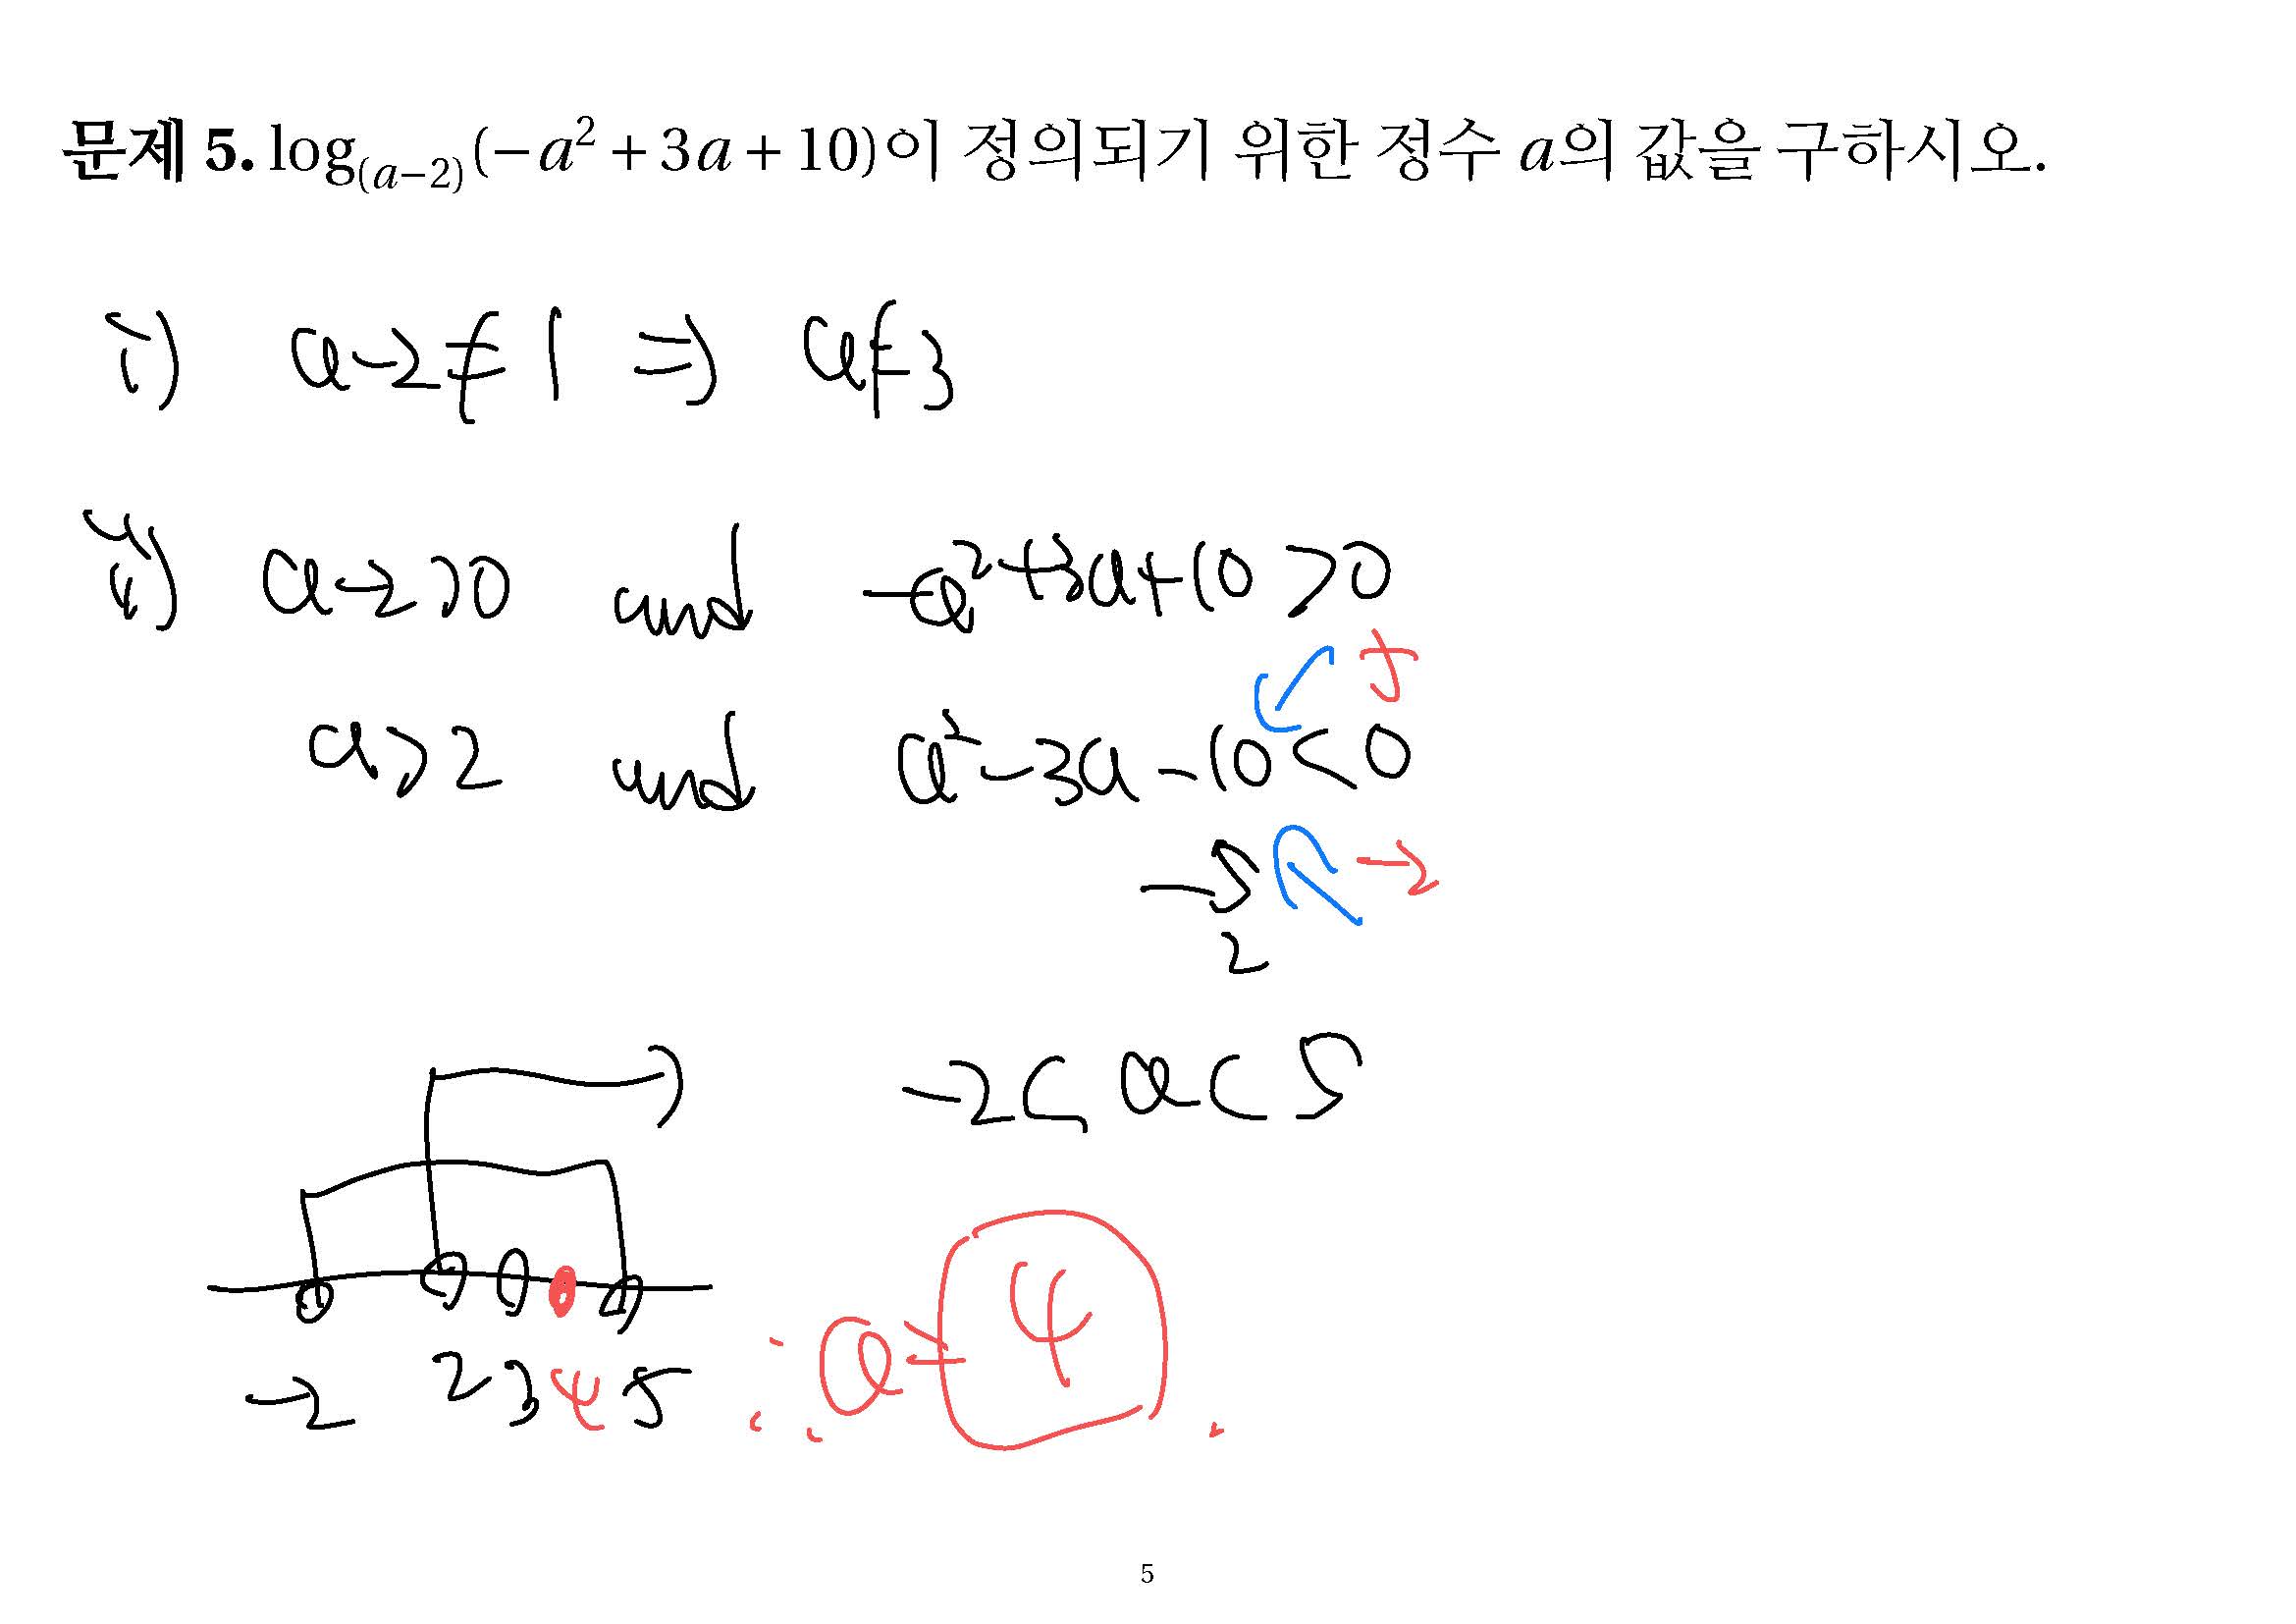 문제 5. log₍ₐ₋₂₎(−a² + 3a + 10)이 정의되기 위한 정수 a의 값을 구하시오.
i) a-2≠1 ⇒ a≠3
ii) a-2>0 and -a²+3a+10>0
a>2 and a²-3a-10<0
-5 -2
2
-2<a<5
-2 2 3 4 5
∴ a=4.
5